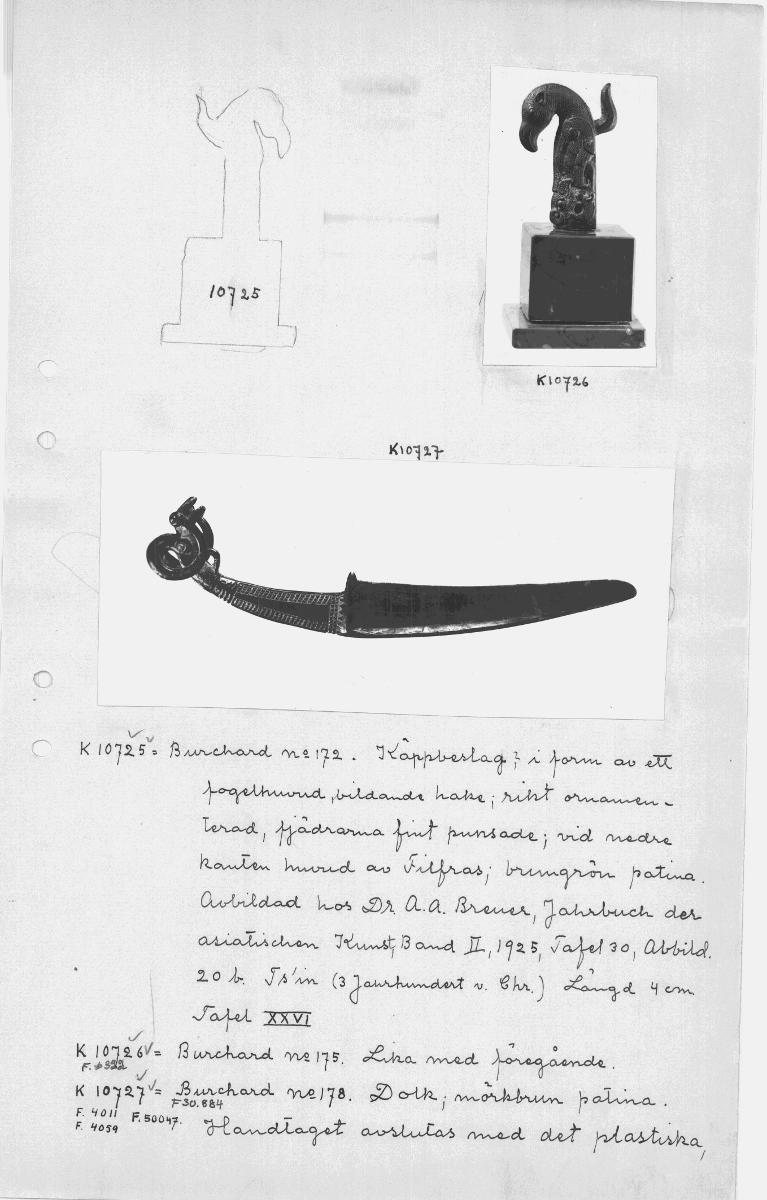 10725
K10726
K10727
K 10725 = Burchard no 172. Käppbeslag? i form av ett
fogelhuvud, bildande hake; rikt ornamen-
terad, fjädrarna fint punsade; vid nedre
kanten huvud av Filfras; brungrön patina.
Avbildad hos Dr. A.A. Breuer, Jahrbuch der
asiatischen Kunst, Band II, 1925, Tafel 30, Abbild.
20 b. Ts'in (3 Jahrhundert v. Chr.) Längd 4 cm.
Tafel XXVI
K 10726 = Burchard no 175. Lika med föregående.
K 10727 = Burchard no 178. Dolk; mörkbrun patina.
F 30.884
F. 4011
F. 50047.
F. 4059
Handtaget avslutas med det plastiska,